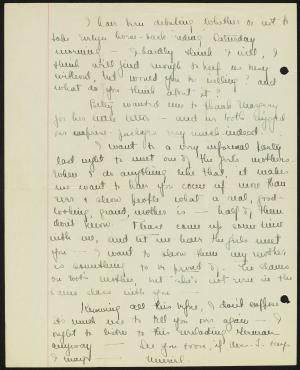 I have been debating whether or not to
take Evelyn horse-back riding Saturday
morning — I hardly think I will, I
think we'll find enough to keep us busy
without, but would you be willing? and
what do you think about it?
Betty wanted me to thank Margery
for her little letter — and us both
our packages very much indeed.
I went to a very informal party
last night to meet one of the girls mothers.
When I do anything like that, it makes
me want to have you come up more than
ever & show people what a real, good-
looking, grand, mother is — half of them
don't know. Please come up some time
with me, and let me have the girls meet
you — I want to show them my mother
is something to be proud of. She shames
us both mother, but she's not even in the
same class with you.
Knowing all this before, I don't suppose
it's much use to tell you over again — I
ought to write to this Herman
anyway — See you soon, if Mrs. T. says
I may —